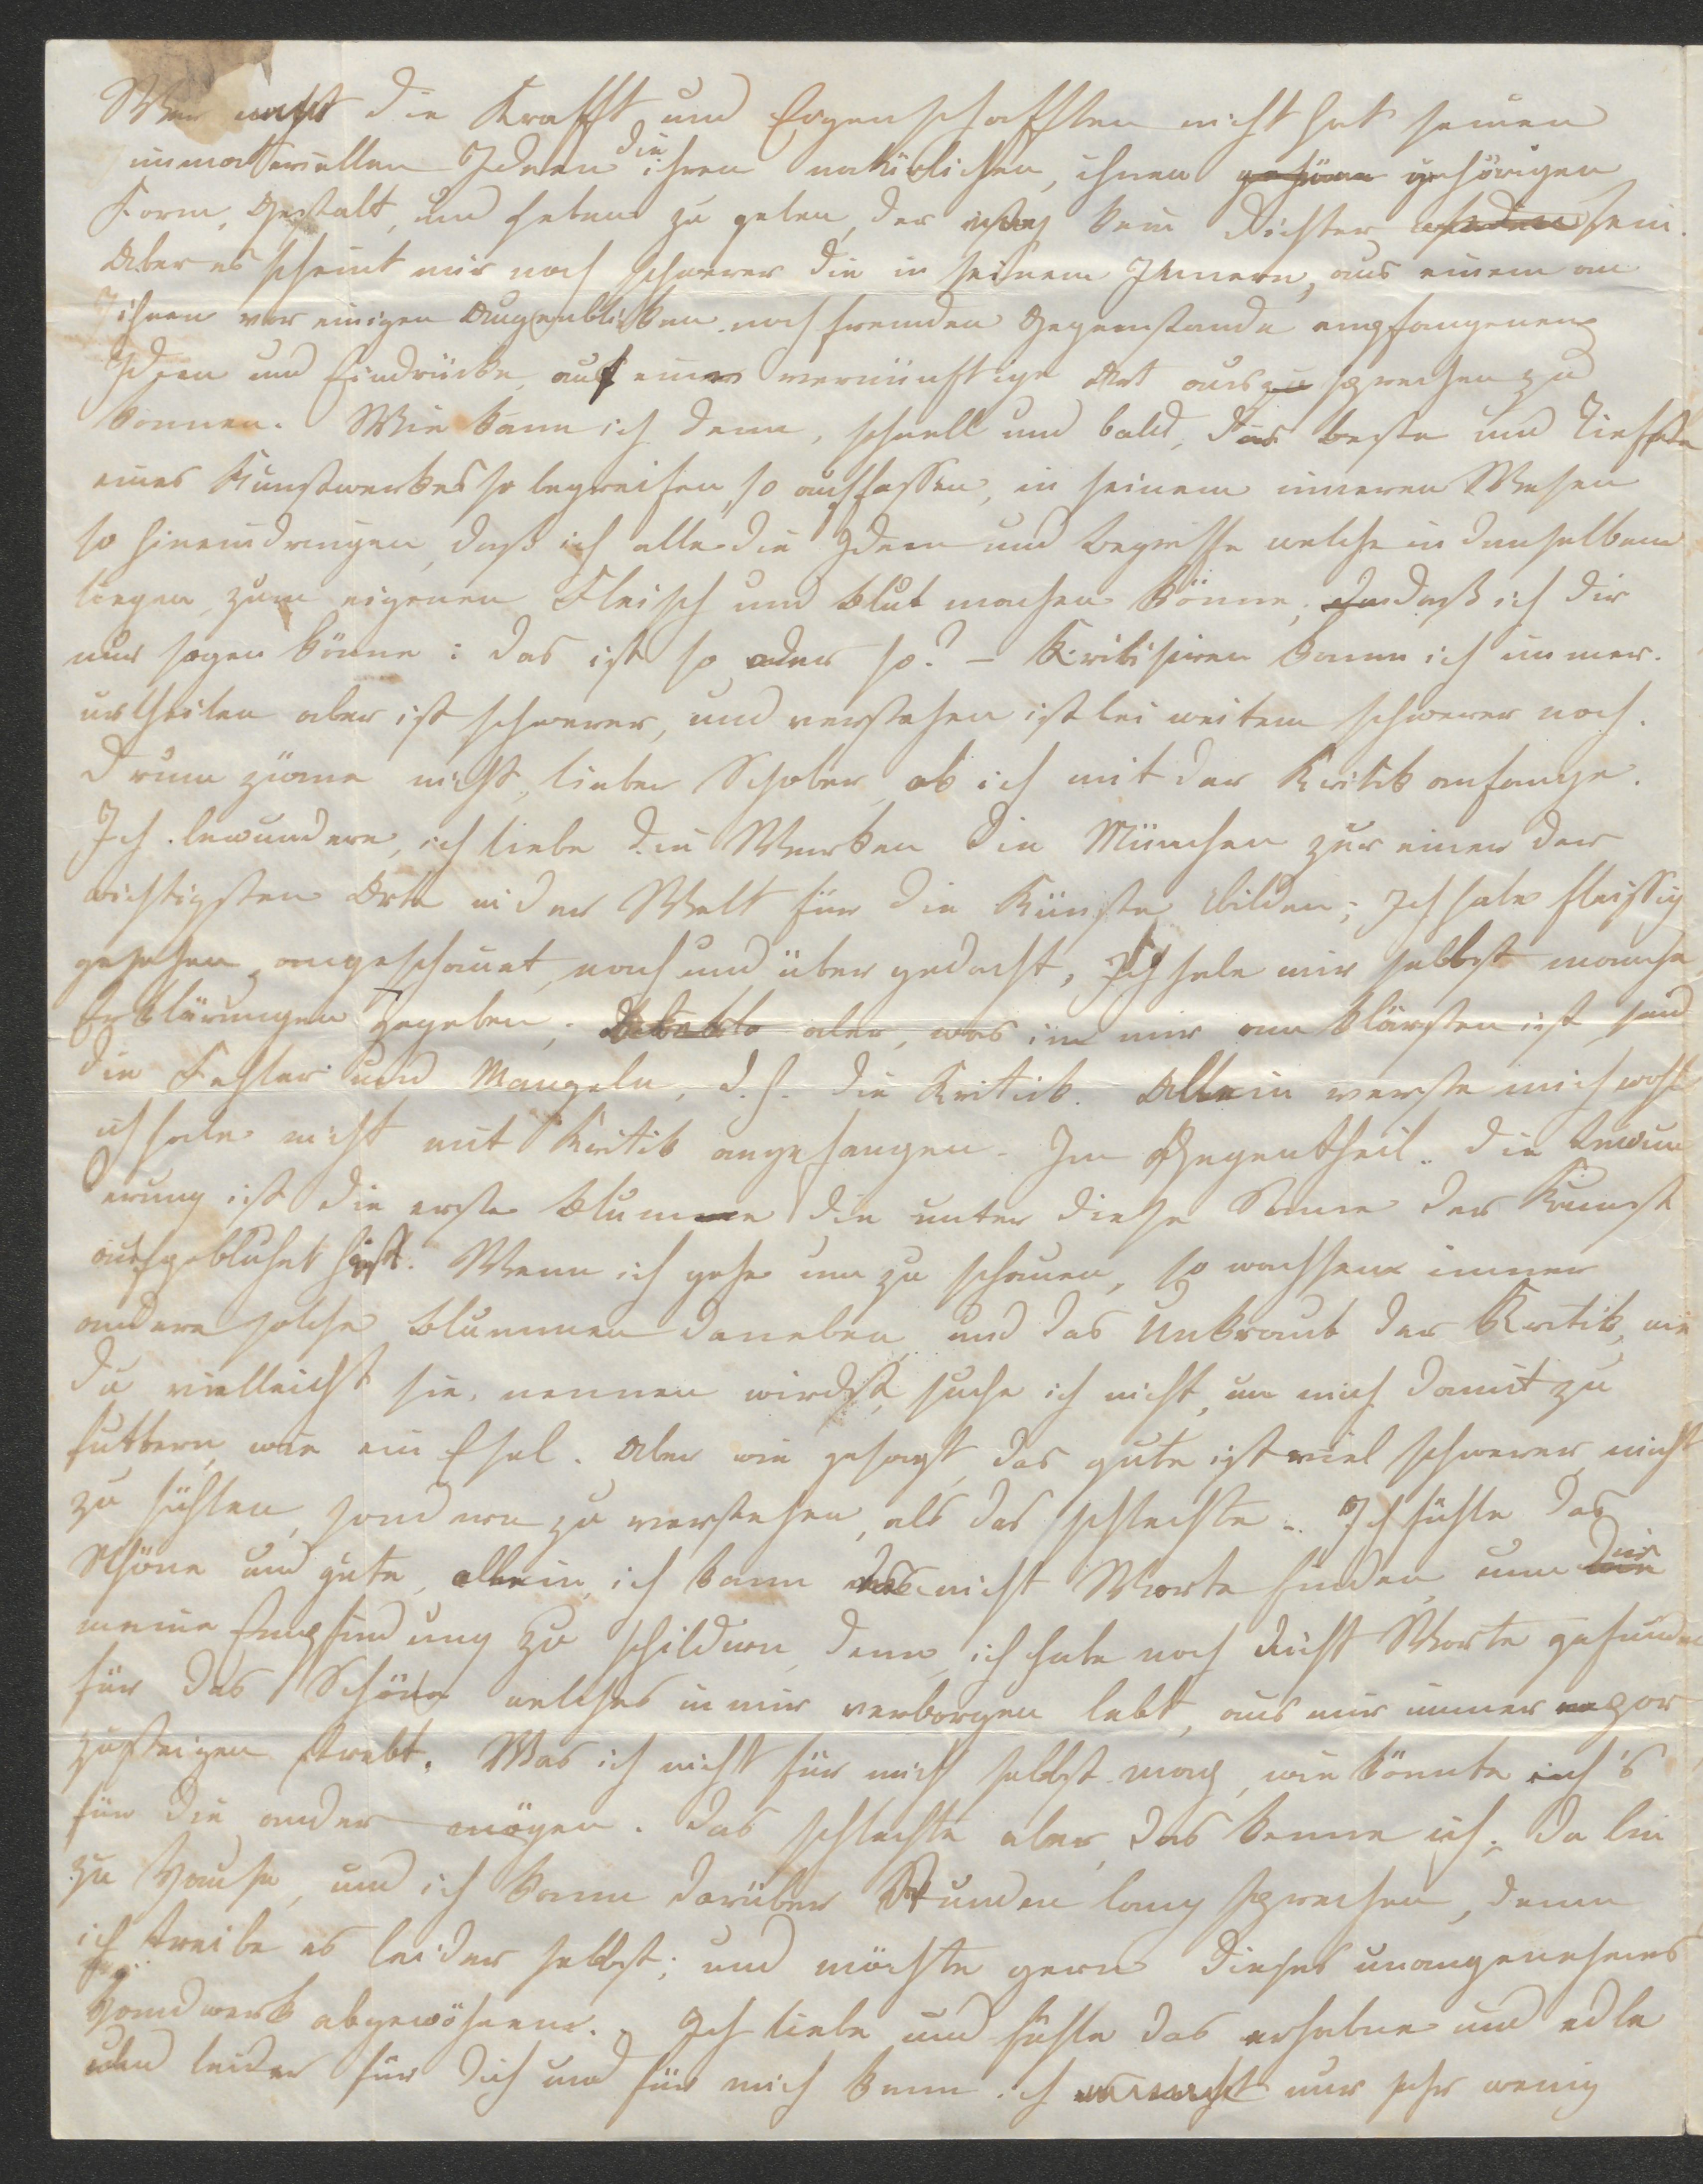 Wer nicht die Krafft und Eigenschafften nicht hat seinen
immateriellen Ideen die ihren natürlichen, ihnen gehörigen
Form, Gestalt, und Leben zu geben, der mag kein Dichter sein.
Aber es scheint mir noch schwerer die in seinem Innern, aus einem an
ihnen vor einigen Augenblicken noch fremden Gegenstande empfangenen
Ideen und Eindrücke, auf einer vernünftige Art aus zu sprechen zu
können. Wie kann ich denn, schnell und bald, das beste und tiefste
eines Kunstwerkes so begreifen, so auffassen, in seinem inneren Wesen
so hineindringen, daß ich alle die Ideen und Begriffe welche in denselben
liegen, zum eigenen Fleisch und Blut machen könne, daß ich dir
nur sagen könne: das ist so, oder so? – Kritisiren kann ich immer.
urtheilen aber ist schwerer, und verstehen ist bei weitem schwerer noch.
Drum zürne nicht, lieber Schober, ob ich mit der Kritik anfange.
Ich bewundere, ich liebe die Werken die München zur einer der
wichtigsten Orte in der Welt für die Künste bilden; Ich habe fleissig
gesehen, angeschauet, nach und über gedacht, Ich habe mir selbst manche
Erklärungen gegeben; aber, was in mir am klärsten ist, sind
die Fehler und Mangeln, d. h. die Kritik. Allein verste mich wohl
ich habe nicht mit Kritik angefangen. Im Gegentheil. die Bewun
derung ist die erste Blumme die unter diese Sonne der Kunst
aufgeblühet ist. Wenn ich gehe um zu schauen, so wachsen immer
andere solche Blummen daneben, und das Unkraut der Kritik, wie
du vielleicht sie nennen wirdst, suche ich nicht, um mich damit zu
futtern, wie ein Esel. Aber wie gesagt, das gute ist viel schwerer, nicht
zu fühlen, sondern zu verstehen, als das schlechte. Ich fühle das
Schöne und gute, allein, ich kann nicht Worte finden, um dir
meine Empfindung zu schildern, denn, ich habe noch nicht Worte gefunden
für das Schöne welches in mir verborgen lebt, aus mir immer empor
zusteigen strebt. Was ich nicht für mich selbst mag, wie könnte ich's
für die ander mögen. Das schlechte aber, das kenne ich; da bin
zu Hause, und ich kann darüber Stunden lang sprechen, denn
ich treibe es leider selbst; und möchte gern dieses unangenehmes
Handwerk abgewöhnen. Ich liebe und fühle das erhabne und edle
und leider für dich und für mich kann ich nur sehr wenig